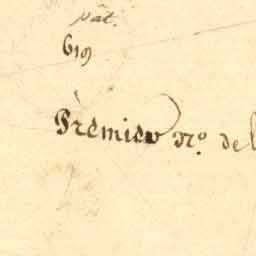 pat.
619
Premier N.º de